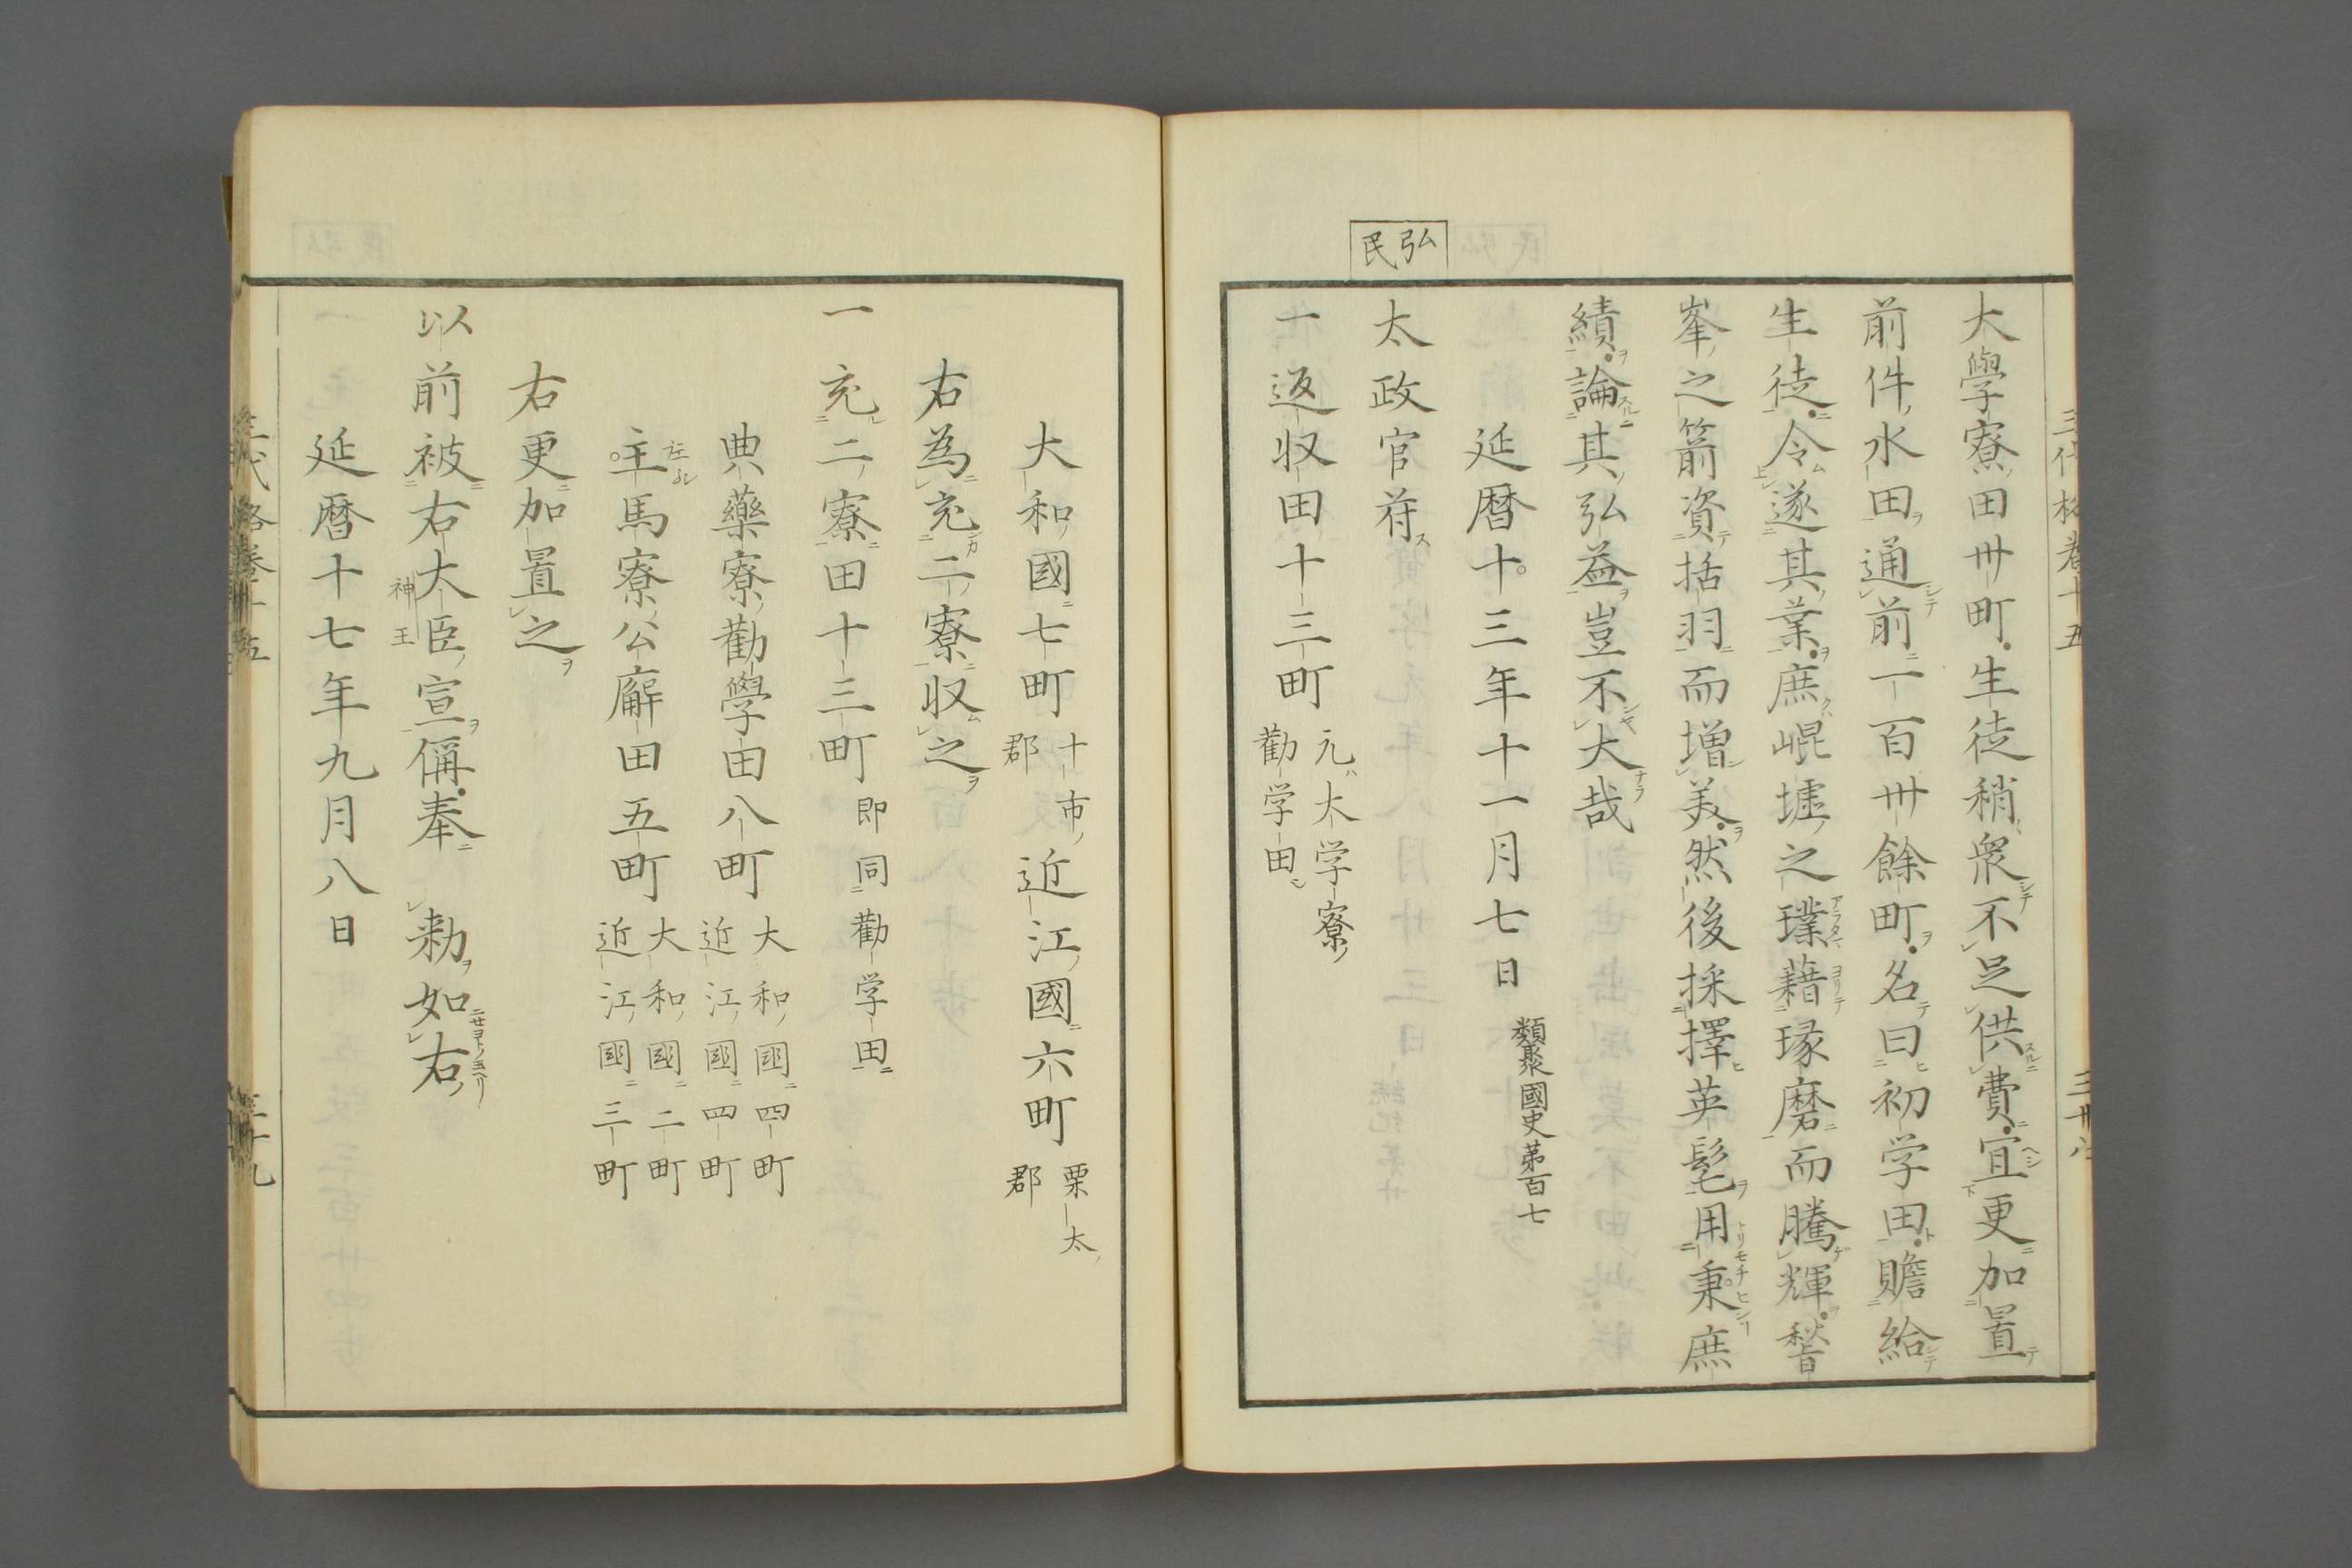 弘民
大學寮田卅町生徒稍衆不足供費宜更加置
前件水田通前一百卅餘町名曰初学田贍給
生徒令遂其業庶崐墟之璞藉琢磨而騰輝嵆
峯之箭資括羽而増美然後採擇英髦用秉庶
績論其弘益豈不大哉
延暦十三年十一月七日 類聚國史第百七
太政官符
一返収田十三町 元大学寮
勸学田
大和國七町 十市郡 近江國六町 栗太郡
右為充二寮収之
一充二寮田十三町 即同勸学田
典藥寮勸學田八町 大和國四町
近江國四町
主馬寮公廨田五町 大和國二町
近江國三町
右更加置之
以前被右大臣宣偁奉 勅如右
神王
延暦十七年九月八日